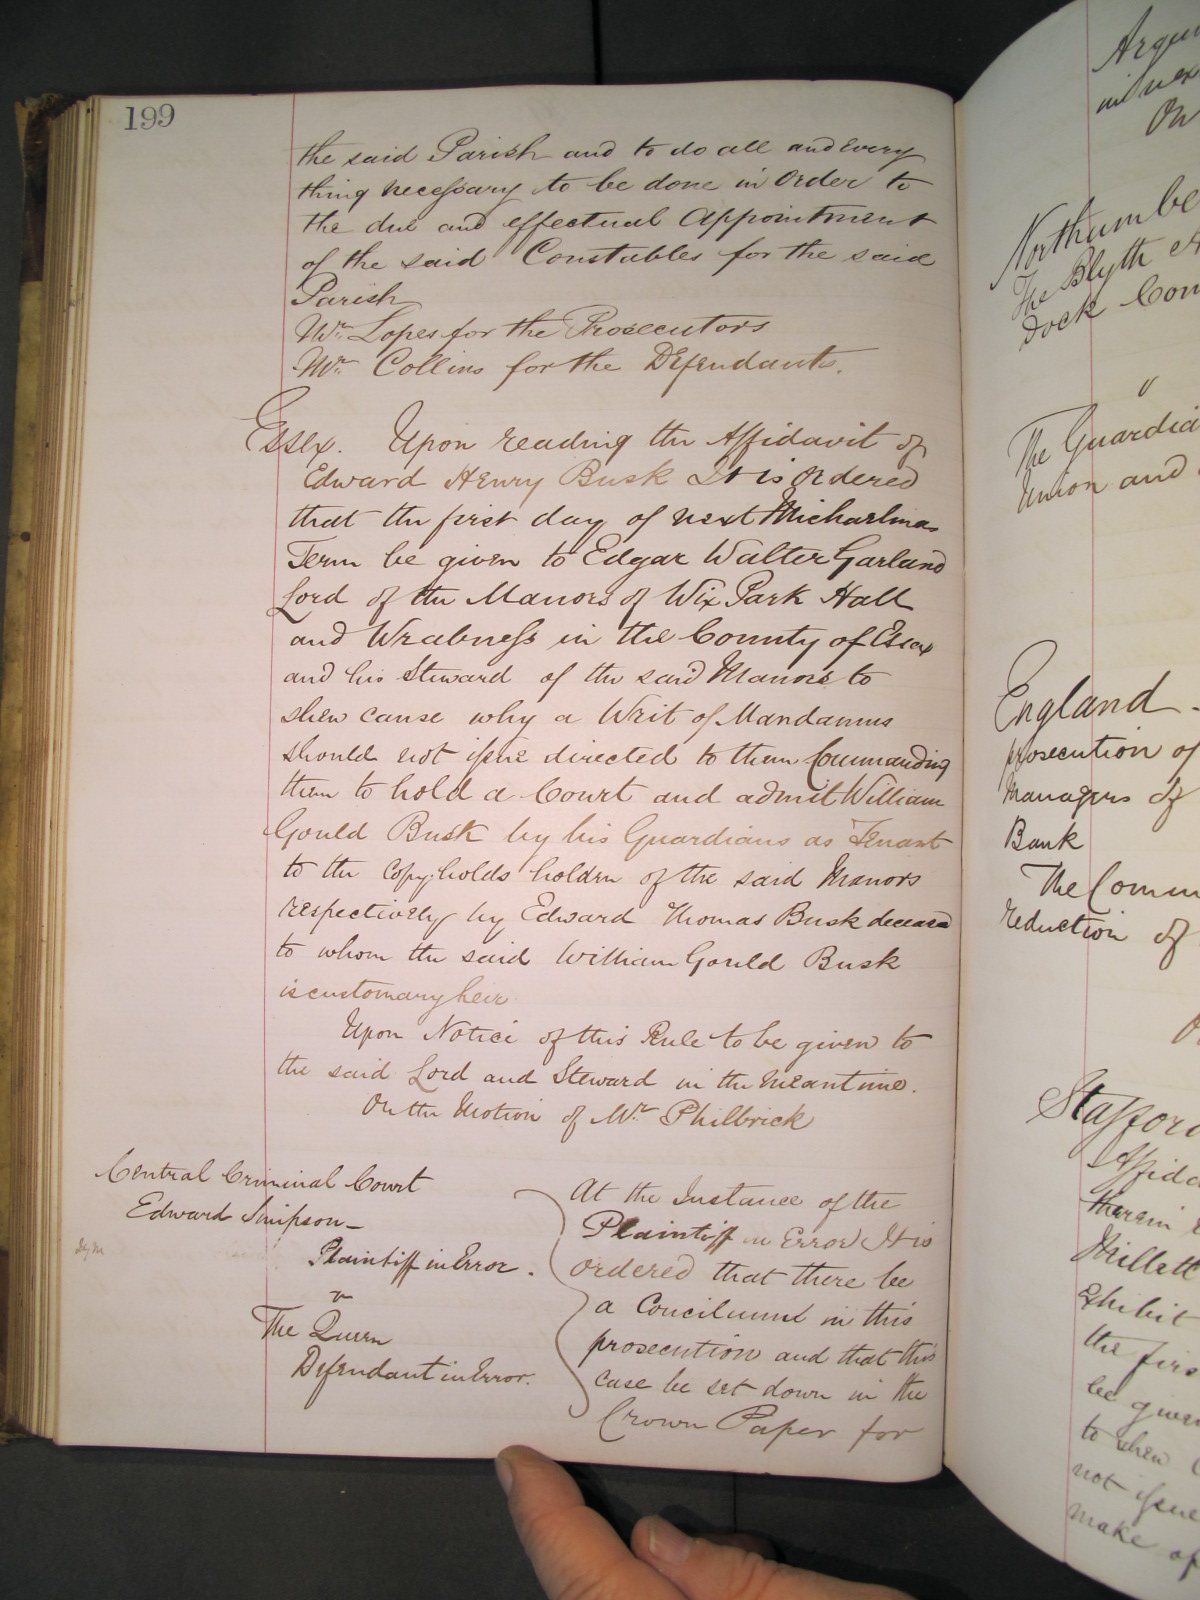 199
the said Parish and to do all and every
thing necessary to be done in order to
the due and effectual Appointment
of the said Constables for the said
Parish
Mr. Lopes for the Prosecutors
Mr. Collins for the Defendants.
Essex. Upon reading the Affidavit of
Edward Henry Busk It is Ordered
that the first day of next Michaelmas
Term be given to Edgar Walter Garland
Lord of the Manors of Wix Park Hall
and Wrabness in the County of Essex
and his Steward of the said Manors to
shew cause why a Writ of Mandamus
should not issue directed to them Commanding
them to hold a Court and admit William
Gould Busk by his Guardians as Tenant
to the Copyholds holden of the said Manors
respectively by Edward Thomas Busk deceased
to whom the said William Gould Busk
is customary heir
Upon Notice of this Rule to be given to
the said Lord and Steward in the meantime.
On the Motion of Mr. Philbrick
Central Criminal Court
Edward Simpson
Plaintiff in Error.
v
The Queen
Defendant in Error.
At the Instance of the
Plaintiff in Error It is
ordered that there be
a Concilium in this
prosecution and that this
case be set down in the
Crown Paper for
Northumbe
The Blyth
Dock Com
"
The Guardia
Union and
England -
prosecution of
Managers of
Bank
The Comm
reduction of
Stafford
Affida
therein
Millett
Exhibit
the firs
be given
to shew
not issue
make